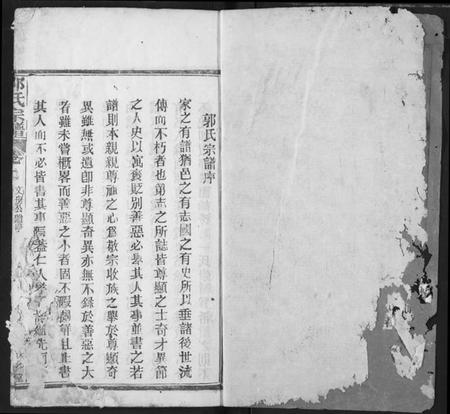 郭氏宗譜序
家之有譜猶邑之有志國之有史所以垂諸後世流
傳而不朽者也第志之所誌皆尊顯之士奇才異節
之人史以寓褒貶別善惡必舉其人其事並書之若
譜則本親親尊祖之心爲敬宗收族之舉於尊顯奇
異雖無或遺卽非尊顯奇異亦無不錄於善惡之大
者雖未嘗概畧而善惡之小者固不暇
其人而不必皆書其事 仁人孝子 先
郭氏宗譜 卷